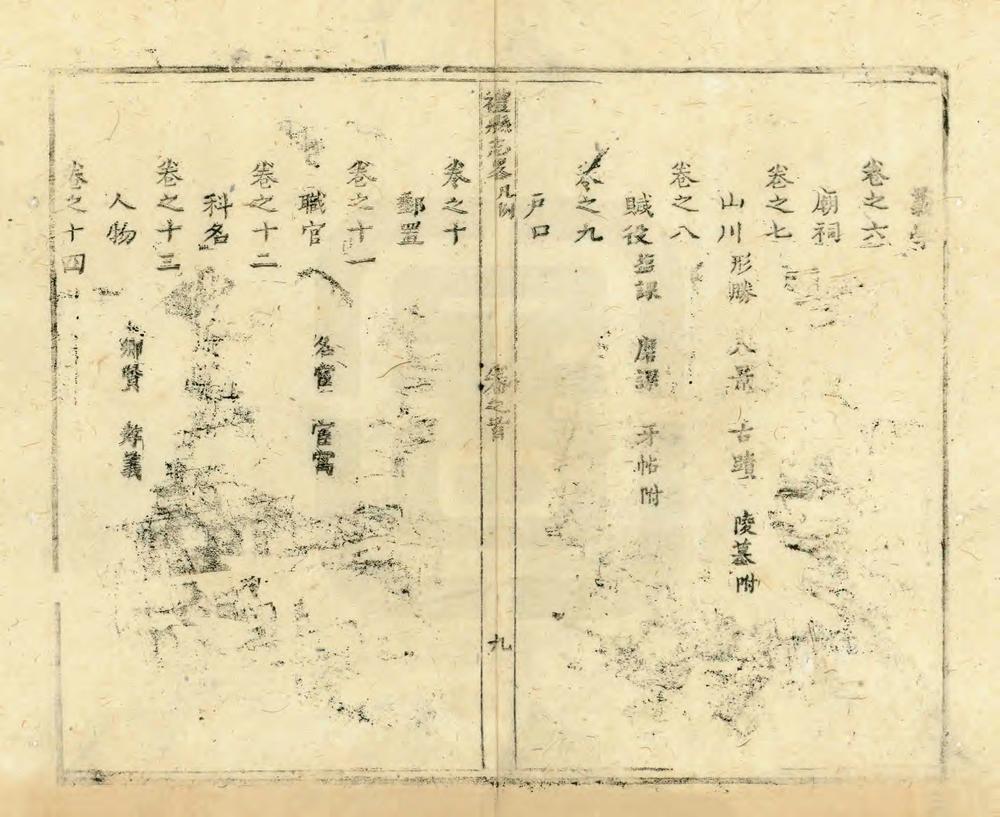 義學
卷之六
廟祠
卷之七
山川 形勝 八景 古蹟 陵墓附
卷之八
賦役 鹽課 磨課 牙帖附
卷之九
戶口
禮縣志畧凡例 卷之首 九
卷之十
郵置
卷之十一
職官 名宦 宦寓
卷之十二
科名
卷之十三
人物 鄉賢 孝義
卷之十四